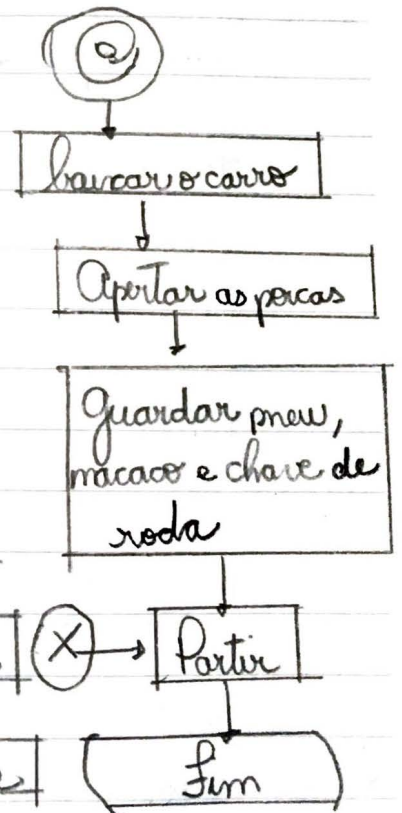 a
baixar o carro
Apertar as porcas
Guardar pneu,
macaco e chave de
roda
X
Partir
Fim